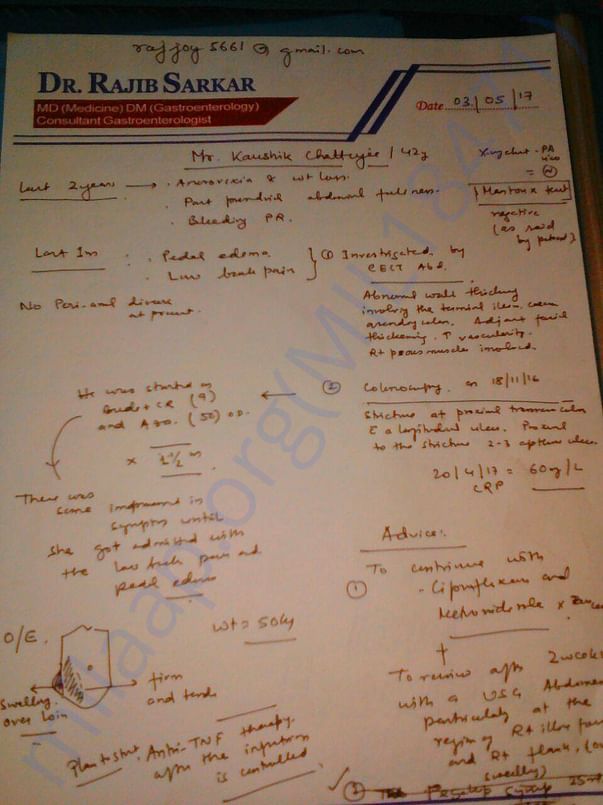 rajjoy5661@gmail.com
DR. RAJIB SARKAR
MD (Medicine) DM (Gastroenterology)
Consultant Gastroenterologist
Date 03/05/17
Mr. Kaushik Chatterjee / 42y
X-ray chest - PA
= N
Mantoux test
negative
(as said
by patient)
Last 2 years → . Anorexia & wt loss.
. Post prandial abdominal fullness.
. Bleeding PR.
Last 1m : . Pedal edema
. Low back pain
No Peri-anal disease
at present.
① Investigated by
CECT Abd.
Abnormal wall thickening
involving the terminal ileum, caecum
ascending colon. Adjacent fascial
thickening, ↑ vascularity.
Rt psoas muscle involved.
② Colonoscopy on 18/11/16
Stricture at proximal transverse colon
a longitudinal ulcer. Proximal
to the stricture 2-3 aphthous ulcers.
20/4/17 = 60 mg/L
CRP
He was started on
CR (9)
and Aza. (50) O.D.
x 2½ m
There was
some improvement in
symptoms until
she got admitted with
the low back pain and
pedal edema
O/E.
wt = 50kg
Swelling
over loin
firm
and tender
Plan to start Anti-TNF therapy
after the infection
is controlled
Advice:
① To continue with
- Ciprofloxacin and
Metronidazole x
+
To review after 2 weeks
with a USG Abdomen
particularly at the
region of Rt iliac fossa
and Rt flank,
swelling)
②
milaap.org(MIL